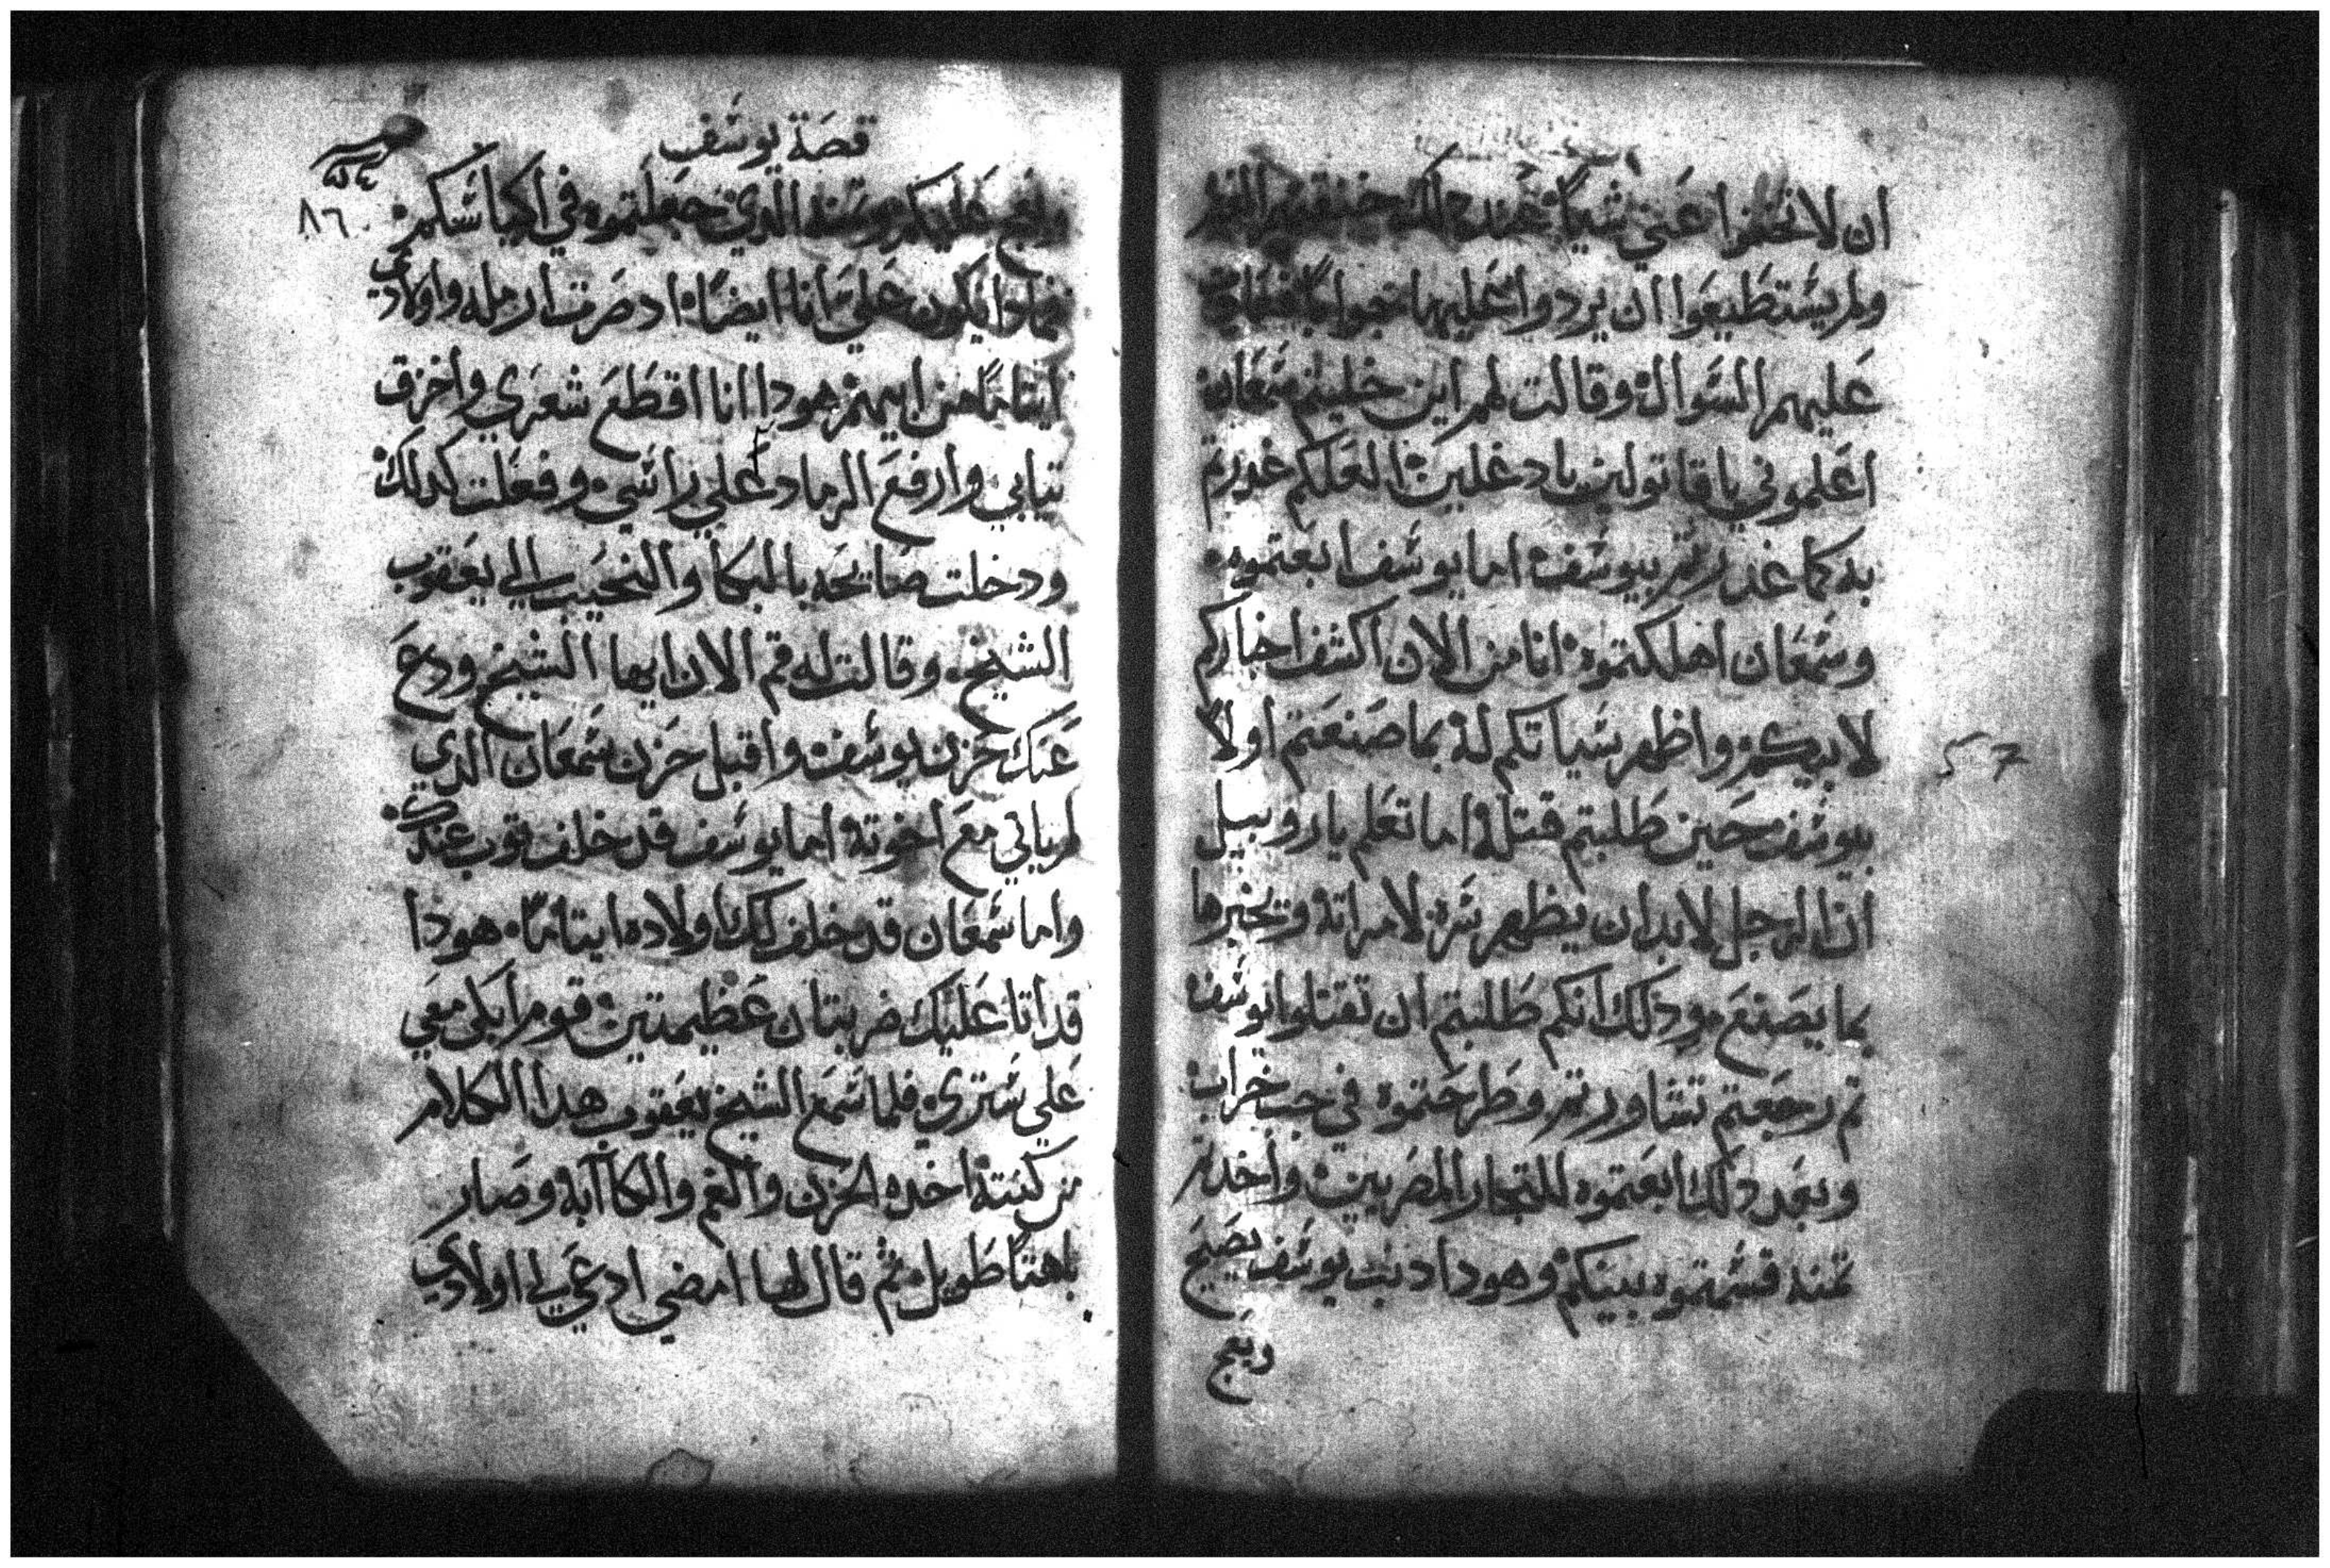 ان لا تخفوا عني شيًا
ولم يستطيعوا ان يردوا عليها جوابًا
عليهم السوال وقالت لهم اين خليتم سمعان
اعلموني يا قاتولين يا دغلين العلكم غدرتم
به كما غدرتم بيوسف اما يوسف ابعتموه
وسمعان اهلكتموه انا من الان اكشف اخباركم
لابيكم واظهر سياتكم له بما صنعتم اولًا
بيوسف حين طلبتم قتله اما تعلم يا روبيل
ان الرجل لا بد ان يظهر سره لامراته ويخبرها
بما يصنع ودلك انكم طلبتم ان تقتلوا يوسف
تم رجعتم تشاورتم وطرحتموه في جب خراب
وبعد دلك ابعتموه للتجار المصريين واخدتم
تمنه قسمتوه بينكم وهودا دنب يوسف يصيح
ويعج
قصة يوسف
٨٦
ويعج عليكم وتمنه الدي جعلتموه في اكياسكم
يكون علي انا ايضًا اد صرت ارمله واولادي
ايتامًا من ابيهم هودا انا اقطع شعري واخرق
تيابي وارفع الرماد علي راسي وفعلت كدلك
ودخلت صايحه بالبكا والنحيب الي يعقوب
الشيخ وقالت له قم الان ايها الشيخ ودع
عنك حزن يوسف واقبل حزن سمعان الدي
لم ياتي مع اخوته اما يوسف قد خلف توب عندك
واما سمعان قد خلف لك اولاده ايتامًا هودا
قد اتا عليك ضربتان عظيمتين قوم ابكي معي
علي ستري فلما سمع الشيخ يعقوب هدا الكلام
من كنيته اخده الحزن والغم والكاآبه وصار
باهتًا طويل ثم قال لها امضي ادعي لي اولادي